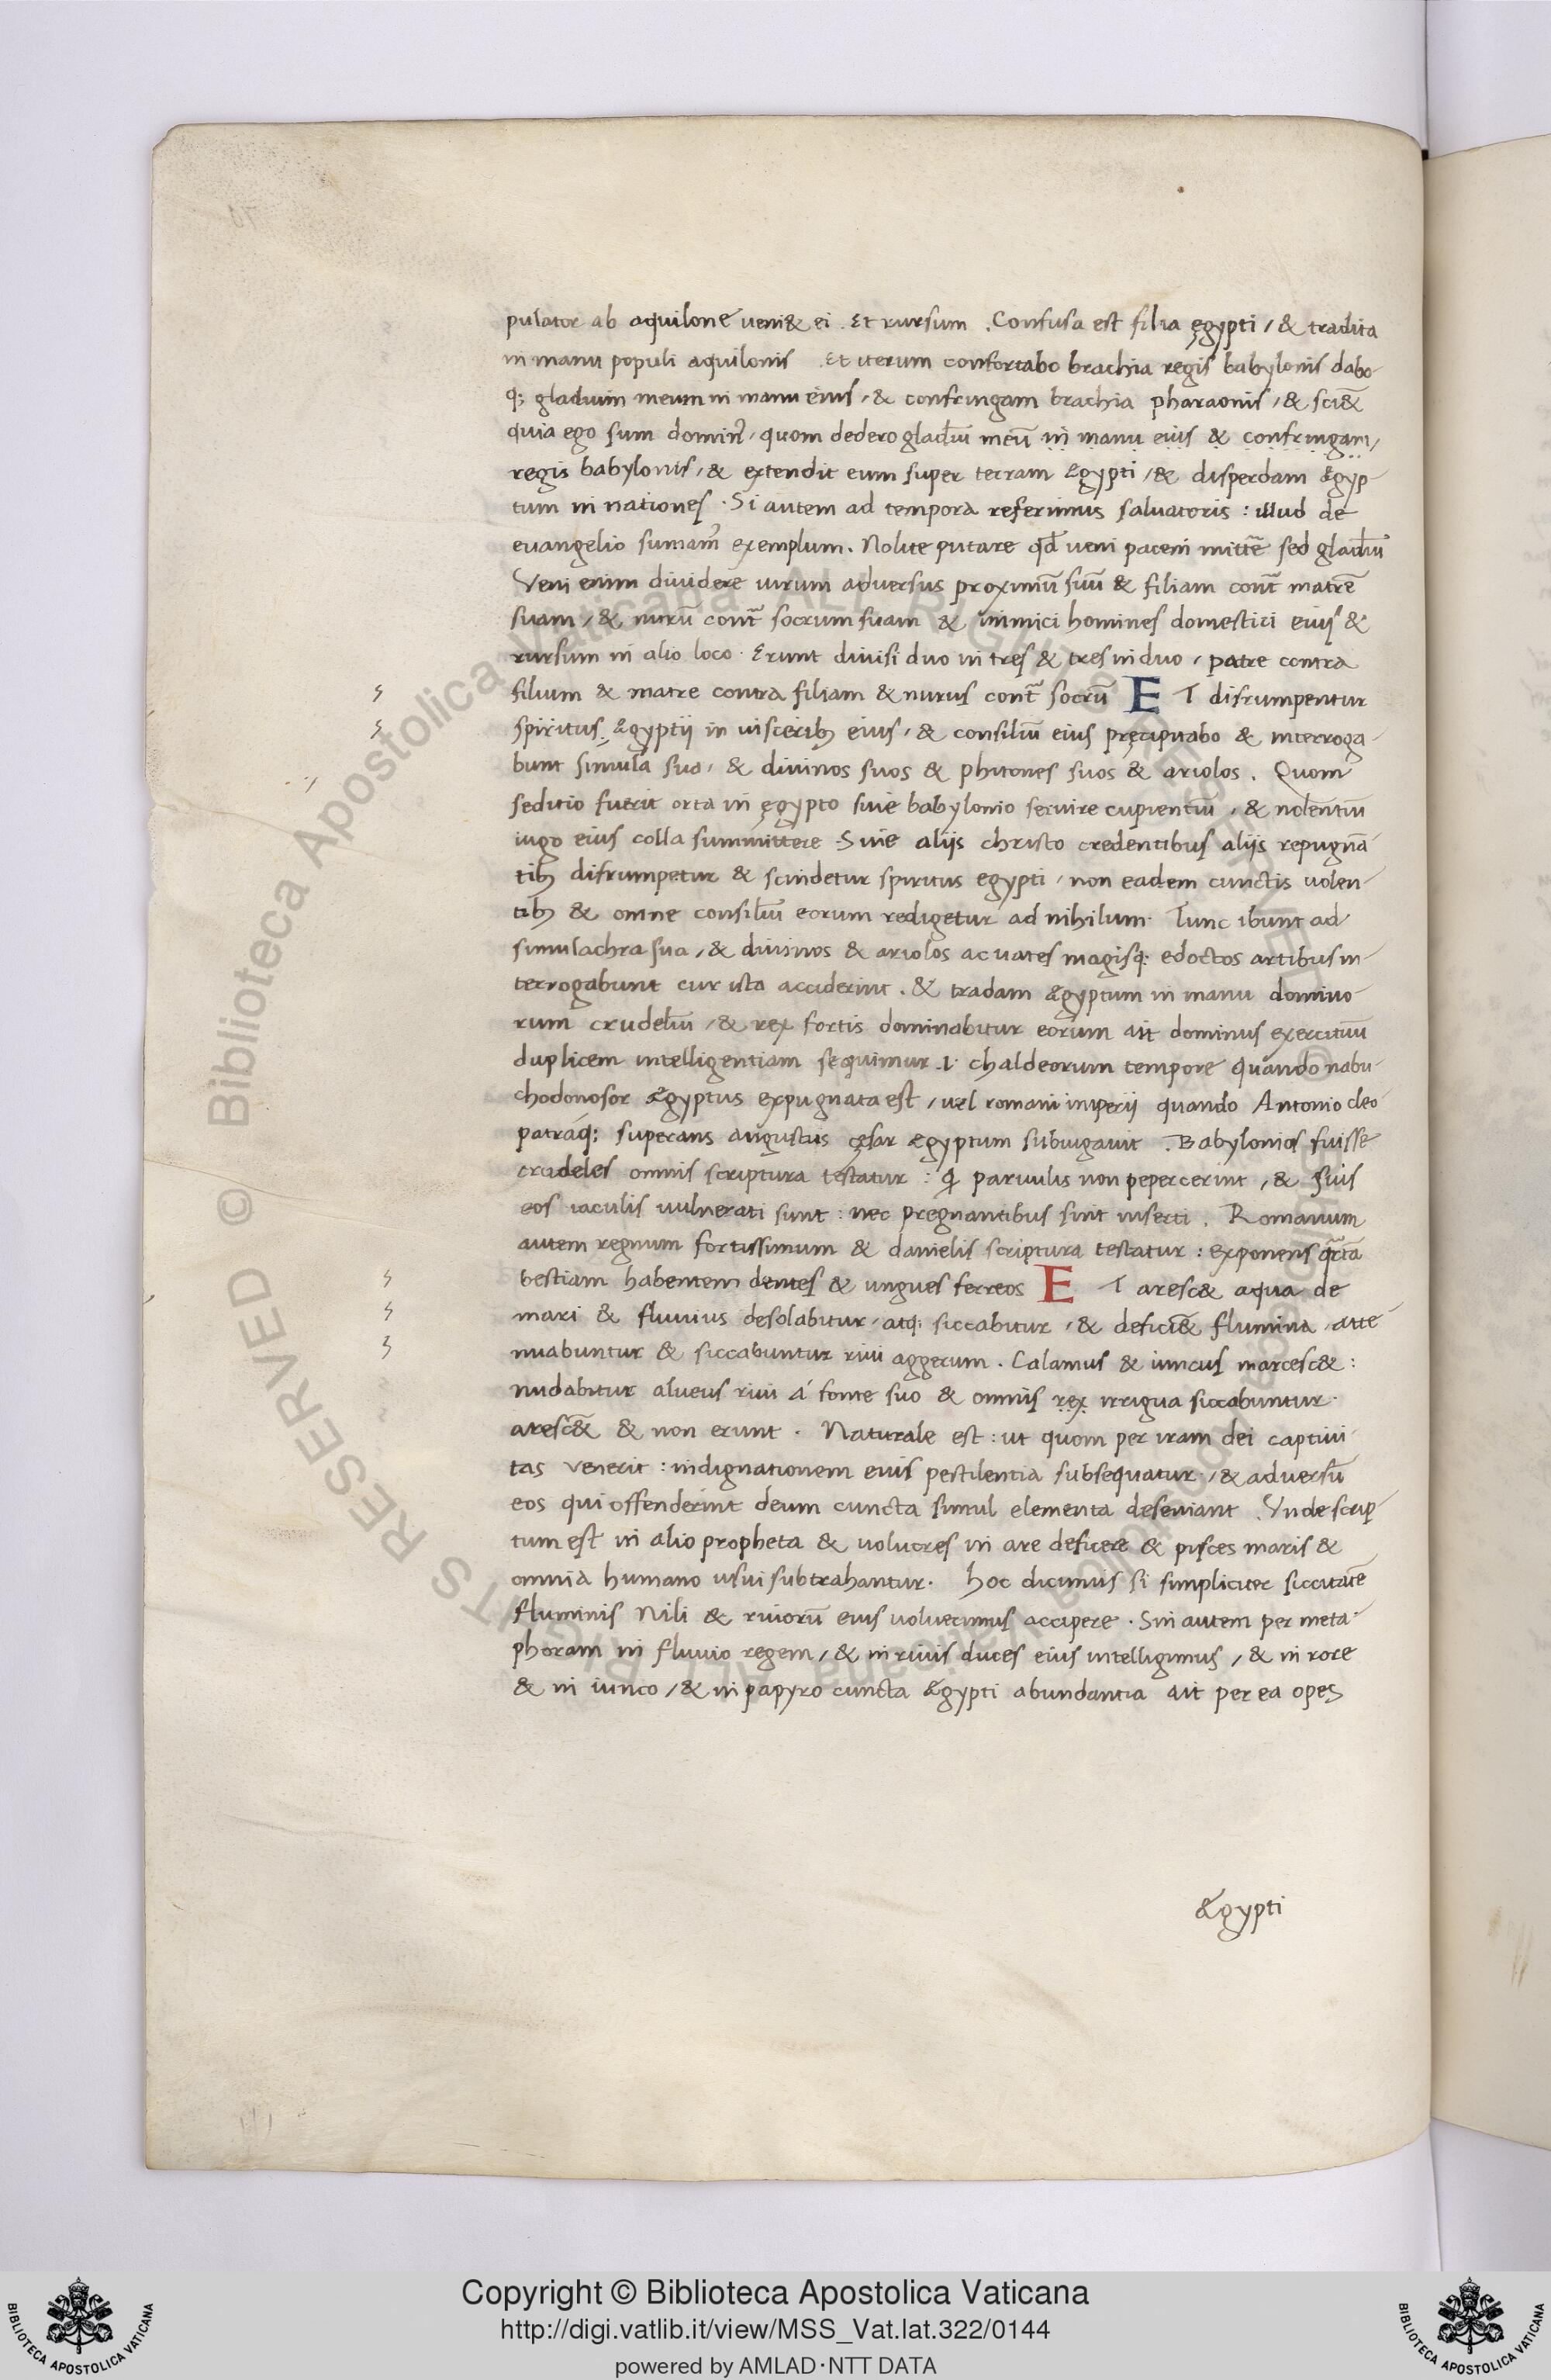 pulator ab aquilone ueni& ei . Et rursum . Confusa est filia ęgypti / & tradita
in manu populi aquilonis . Et iterum confortabo brachia regis babylonis dabo
q; gladium meum in manu eius / & confringam brachia pharaonis / & sciē&
quia ego sum domin⁹ / quom dedero gladiū meū in manu eius & confringam /
regis babylonis / & extendit eum super terram ægypti / & disperdam ægyp-
tum in nationes . Si autem ad tempora referimus saluatoris : illud de
euangelio sumam⁹ exemplum . Nolite putare qd̄ ueni pacem mittē sed gladiū
Veni enim diuidere uirum aduersus proximū suū & filiam cont̄ matrē
suam / & nurū cont̄ socrum suam & inimici homines domestici eius &
rursum in alio loco . Erunt diuisi duo in tres & tres in duo / patre contra
filium & matre contra filiam & nurus cont̄ socrū E T disrumpentur
spiritus ægyptii in uisceribꝫ eius / & consiliū eius pręcipitabo & interroga-
bunt simula sua / & diuinos suos & phitones suos & ariolos . Quom
seditio fuerit orta in ęgypto siue babylonio seruire cupientiū / & nolentiū
iugo eius colla summittere . Siue aliis christo credentibus aliis repugnā-
tibꝫ disrumpetur & scindetur spiritus egypti / non eadem cunctis uolen-
tibꝫ & omne consiliū eorum redigetur ad nihilum . Tunc ibunt ad
simulachra sua / & diuinos & ariolos ac uates magisq; edoctos artibus in-
terrogabunt cur ista acciderint . & tradam ægyptum in manu domino-
rum crudeliū / & rex fortis dominabitur eorum ait dominus exercituū
duplicem intelligentiam sequimur .l. chaldeorum tempore quando nabu-
chodonosor ægyptus expugnata est / uel romani imperii quando Antonio cleo-
patráq; superans augustus cęsar ægyptum subiugauit . Babylonios fuisse
crudeles omnis scriptura testatur : q̨ paruulis non pepercerint / & suis
eos iaculis uulnerati sunt : nec pregnantibus sint inserti . Romanum
autem regnum fortissimum & danielis scriptura testatur : exponens qrtā
bestiam habentem dentes & ungues ferreos E T aresc& aqua de
mari & fluuius desolabitur / atq; siccabitur / & deficiē& flumina / atte-
nuabuntur & siccabuntur riui aggerum . Calamus & iuncus marcesc& :
nudabitur alueus riui á fonte suo & omnis rex irrigua siccabuntur .
arescē& & non erunt . Naturale est : ut quom per iram dei captiui-
tas uenerit : indignationem eius pestilentia subsequatur / & aduersū
eos qui offenderint deum cuncta simul elementa deseuiant . Vnde scrip-
tum est in alio propheta & uolucres in are deficere & pisces maris &
omnia humano usui subtrahantur . hoc dicimus si simpliciter siccitatē
fluminis Nili & riuorū eius uoluerimus accipere . Sin autem per meta-
phoram in fluuio regem / & in riuis duces eius intelligimus / & in rore
& in iunco / & in papyro cuncta ægypti abundantia ait per ea opes
ægypti
Copyright © Biblioteca Apostolica Vaticana
http://digi.vatlib.it/view/MSS_Vat.lat.322/0144
powered by AMLAD·NTT DATA
BIBLIOTECA APOSTOLICA VATICANA
BIBLIOTECA APOSTOLICA VATICANA